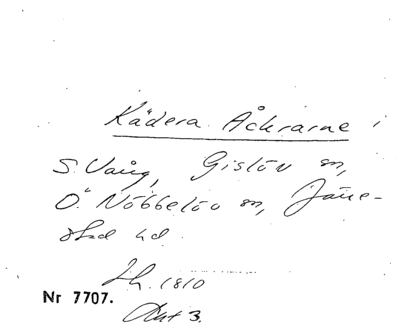 Kädera Åkrarne i
S. Vång, Gislöv sn,
Ö. Nöbbelöv sn, Järre-
stad hd.
Lh. 1810
Nr 7707.
Akt 3.